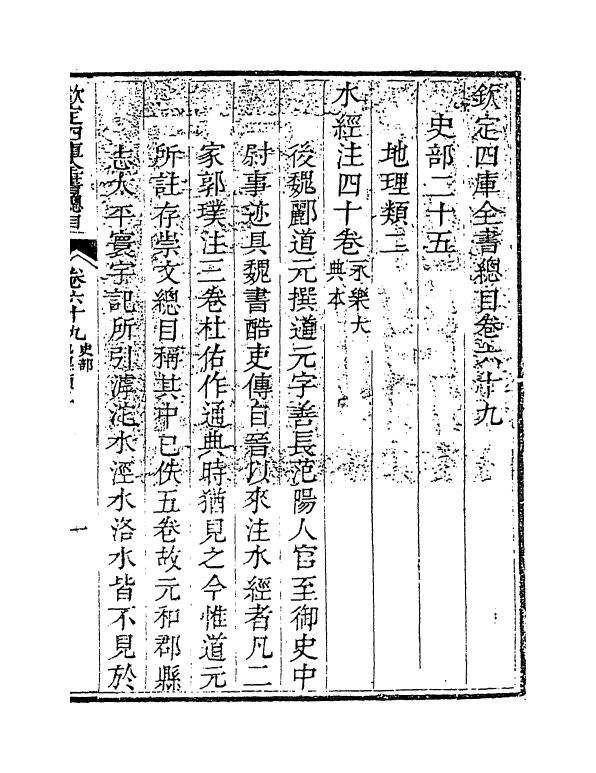 欽定四庫全書總目卷六十九
史部二十五
地理類二
水經注四十卷永樂大典本
後魏酈道元撰道元字善長范陽人官至御史中
尉事迹具魏書酷吏傳自晉以來注水經者凡二
家郭璞注三卷杜佑作通典時猶見之今惟道元
所註存崇文總目稱其中已佚五卷故元和郡縣
志太平寰宇記所引滹沱水涇水洛水皆不見於
欽定四庫全書總目 卷六十九 史部 一